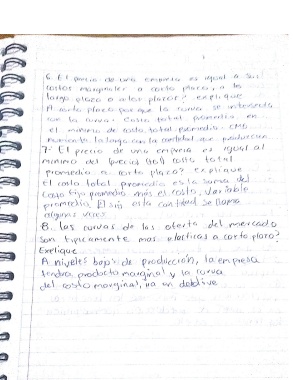 6. El precio de una empresa es igual a sus
costos marginales a corto plazo, a
largo plazo o ambos plazos? explique
A corto plazo porque la curva se intersenta
con la curva. Costo total promedio en
el minimo de costo total promedio. CMg
aumenta a lo largo con la cantidad que produccion
7- El precio de una empresa es igual al
minimo del costo total
promedio a corto plazo? explique
El costo total promedio es la suma de
Costo fijo promedio mas el costo, variable
promedio. El sin esta cantidad se llama
algunas veces
8. las curvas de los oferta del mercado
son tipicamente mas elasticas a corto plazo?
Explique
A niveles bajos de producción, la empresa
tendra producto marginal y la curva
del costo marginal, va en declive